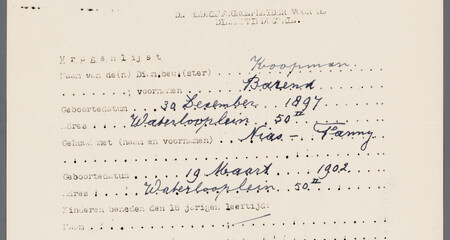 Vragenlijst
Naam van de(n) Dien.bew.(ster) Koopman.
voornamen Barend
Geboortedatum 30 December 1897
Adres Waterlooplein 50 II
Gehuwd met (naam en voornamen) Nias - Fanny
Geboortedatum 19 Maart 1902
Adres Waterlooplein 50 II
Kinderen beneden den 16 jarigen leeftijd:
Naam